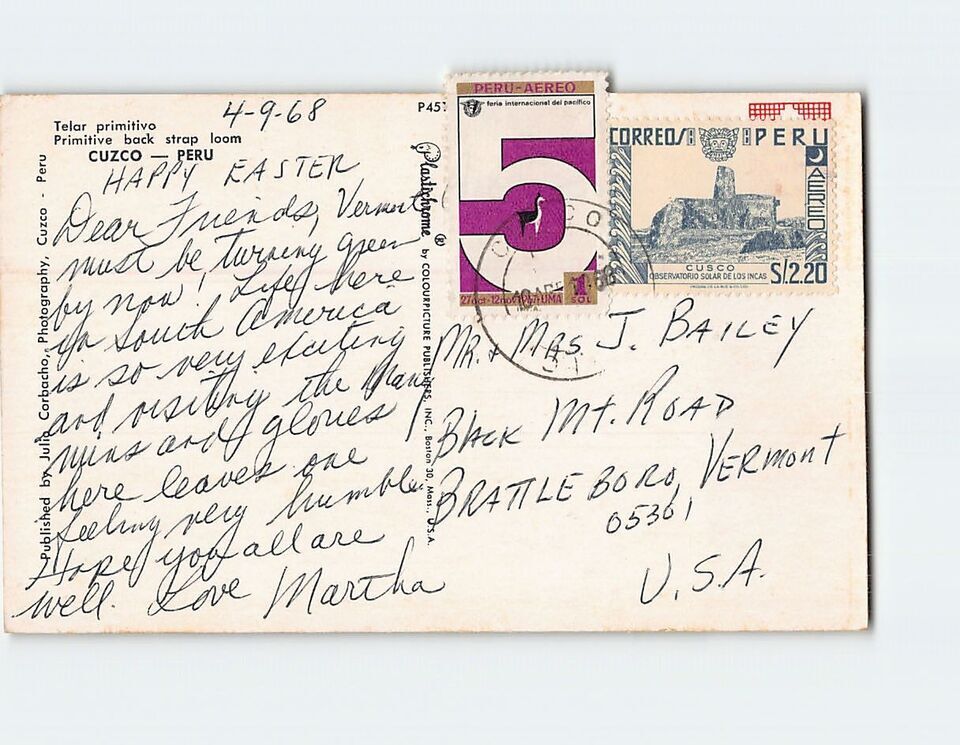 4-9-68
P457
Telar primitivo
Primitive back strap loom
CUZCO — PERU
HAPPY EASTER
Dear Friends, Vermont
must be turning green
by now! Life here
in South America
is so very exciting
and visiting the many
ruins and glories
here leaves one
feeling very humble.
Hope you all are
well. Love Martha
Published by Julio Corbacho, Photography, Cuzco - Peru
Plastichrome ® by COLOURPICTURE PUBLISHERS, INC., Boston 30, Mass., U.S.A.
PERU-AEREO
feria internacional del pacífico
5
27 oct-12 nov 1967-LIMA
1
SOL
CORREOS PERU
AEREO
CUSCO
OBSERVATORIO SOLAR DE LOS INCAS
S/.2.20
Mr. & Mrs J. BAILEY
BLACK MT. ROAD
BRATTLEBORO, VERMONT
05301
U.S.A.